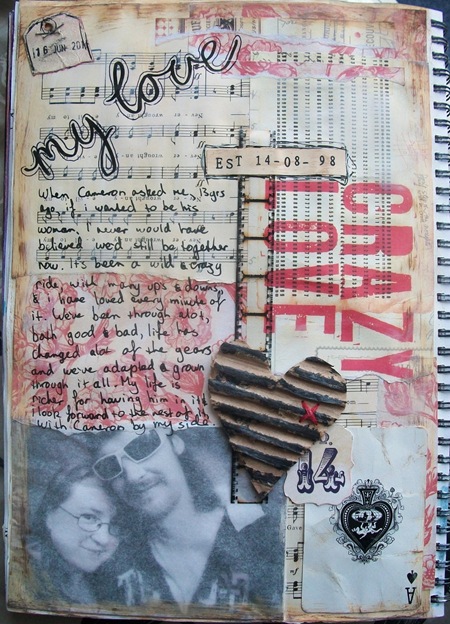 16 JUN 201
my love
EST 14-08-98
CRAZY
LOVE
When Cameron asked me, 13yrs
ago, if i wanted to be his
woman. I never would have
believed we'd still be together
now. It's been a wild & crazy
ride with many ups & downs
& i have loved every minute of
it. We've been through alot,
both good & bad, life has
changed alot of the years
and we've adapted & grown
through it all. My life is
richer for having him in it &
I look forward to the rest of it
with Cameron by my side.
14
Gave
A